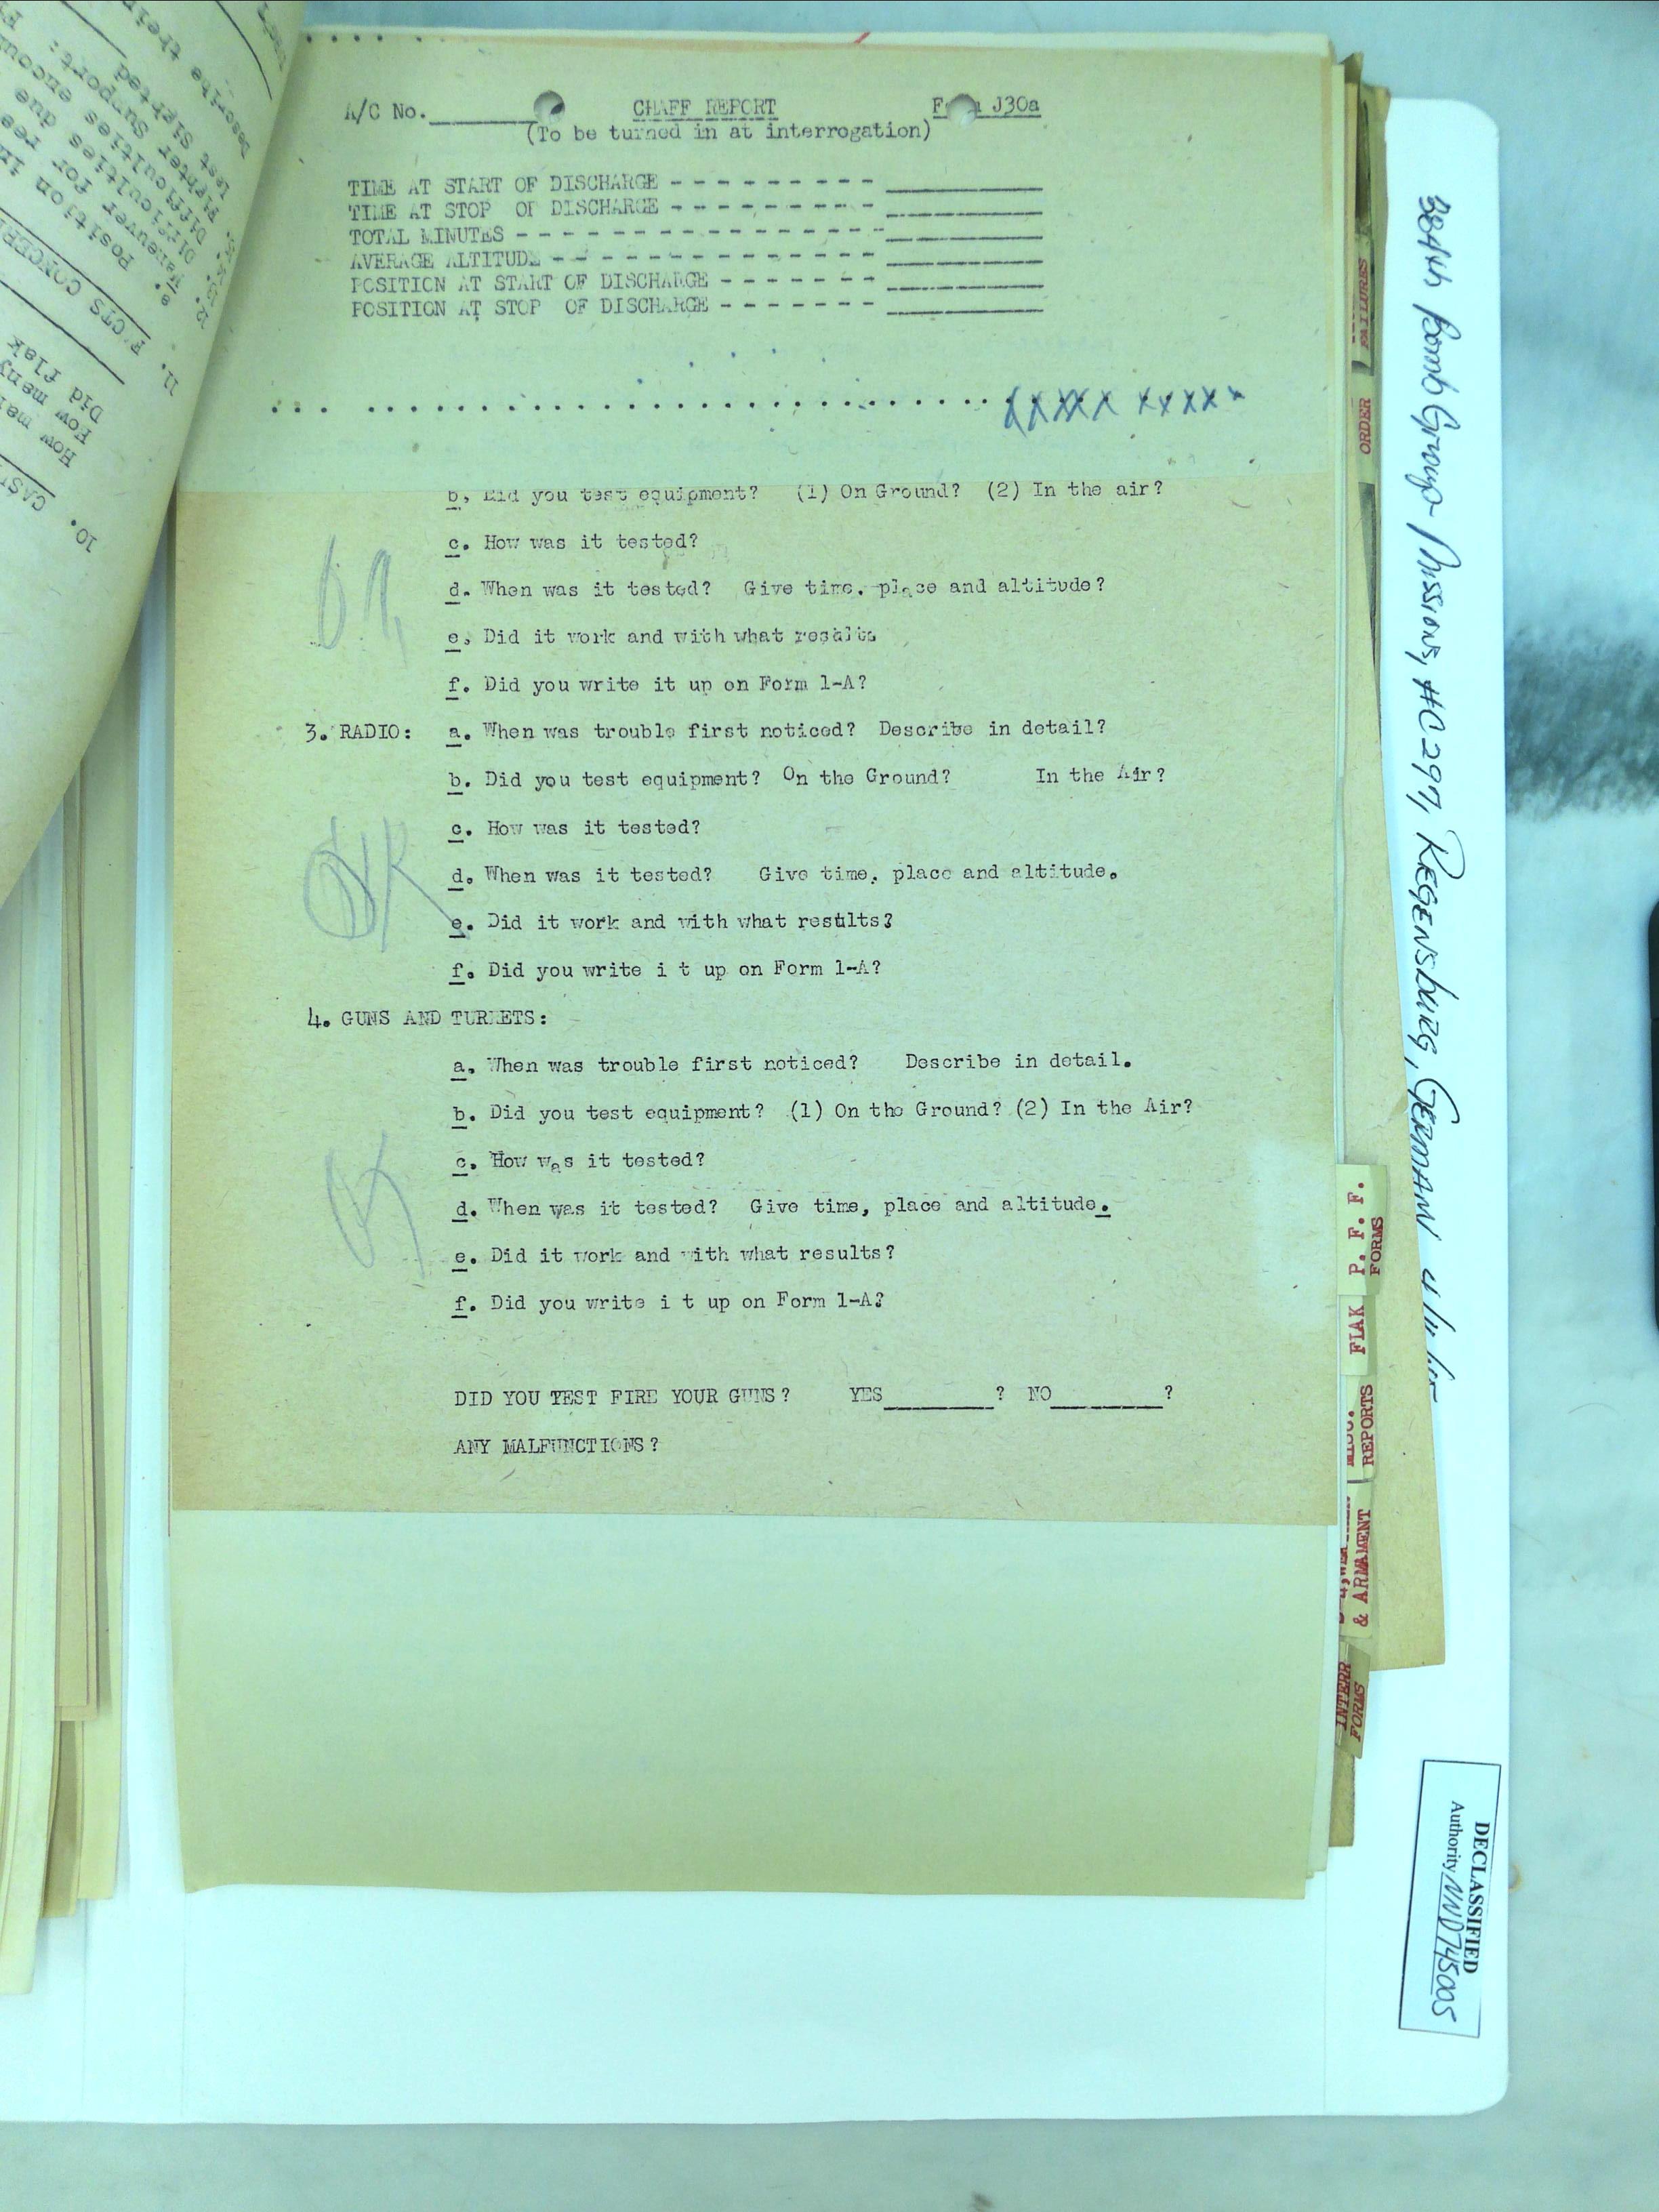 A/C No.
CHAFF REPORT
J30a
(To be turned in at interrogation)
TIME AT START OF DISCHARGE - - - - - - - - - -
TIME AT STOP OF DISCHARGE - - - - - - - - - -
TOTAL MINUTES - - - - - - - - - - - - - - - - -
AVERAGE ALTITUDE - - - - - - - - - - - - - - -
POSITION AT START OF DISCHARGE - - - - - - -
POSITION AT STOP OF DISCHARGE - - - - - - -
xxxx xxxxx
b. Did you test equipment? (1) On Ground? (2) In the air?
c. How was it tested?
d. When was it tested? Give time, place and altitude?
e. Did it work and with what results
f. Did you write it up on Form 1-A?
3. RADIO: a. When was trouble first noticed? Describe in detail?
b. Did you test equipment? On the Ground? In the Air?
c. How was it tested?
d. When was it tested? Give time, place and altitude.
OK
e. Did it work and with what results?
f. Did you write i t up on Form 1-A?
4. GUNS AND TURRETS:
a. When was trouble first noticed? Describe in detail.
b. Did you test equipment? (1) On the Ground? (2) In the Air?
c. How was it tested?
d. When was it tested? Give time, place and altitude.
e. Did it work and with what results?
f. Did you write i t up on Form 1-A?
DID YOU TEST FIRE YOUR GUNS? YES ? NO ?
ANY MALFUNCTIONS?
10.
How many
Did flak
11.
Position
Maneuver for
12.
Fighter Support:
FAILURES
ORDER
P. F. F.
FORMS
FLAK
MISC.
REPORTS
& ARMAMENT
INTERR
FORMS
384th Bomb Group Missions, #C 297, REGENSBURG, GERMANY
DECLASSIFIED
Authority NND745005